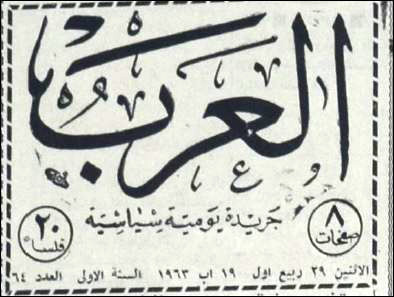 العرب
جريدة يومية سياسية
٨ صفحات
٢٠ فلسا
الاثنين ٢٩ ربيع اول ١٩ اب ١٩٦٣ السنة الاولى العدد ٦٤